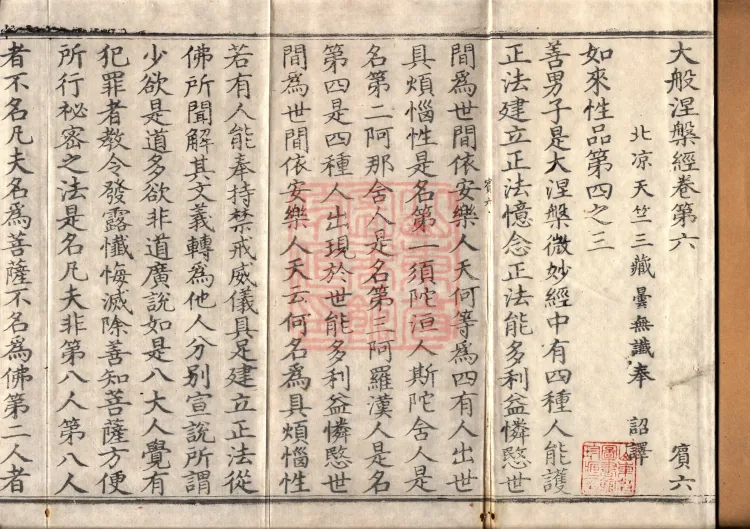 大般涅槃經卷第六 賓六
北凉天竺三藏曇無讖奉 詔譯
如來性品第四之三
善男子是大涅槃微妙經中有四種人能護
正法建立正法憶念正法能多利益憐愍世
間爲世間依安樂人天何等爲四有人出世
具煩惱性是名第一須陀洹人斯陀含人是
名第二阿那含人是名第三阿羅漢人是名
第四是四種人出現於世能多利益憐愍世
間爲世間依安樂人天云何名爲具煩惱性
若有人能奉持禁戒威儀具足建立正法從
佛所聞解其文義轉爲他人分别宣說所謂
少欲是道多欲非道廣說如是八大人覺有
犯罪者教令發露懺悔滅除善知菩薩方便
所行祕密之法是名凡夫非第八人第八人
者不名凡夫名爲菩薩不名爲佛第二人者
賓六